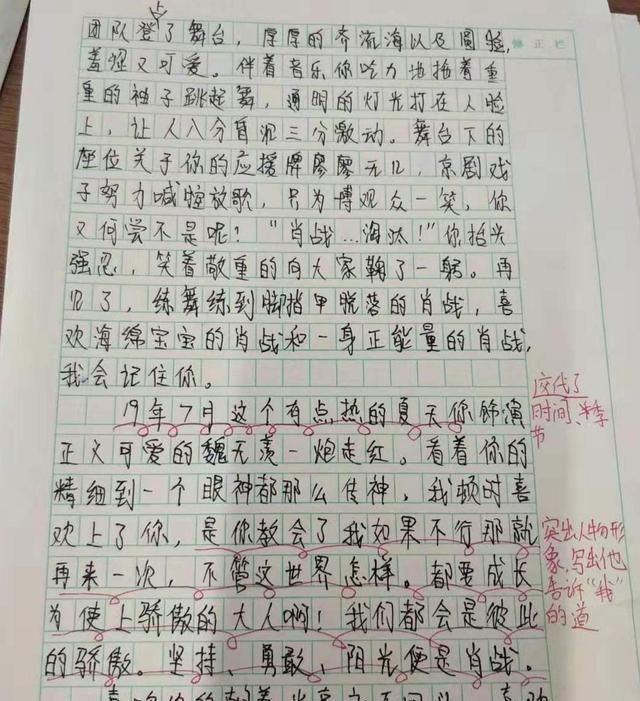 上
团队登了舞台，厚厚的齐流海以及圆脸，
修正栏
羞涩又可爱。伴着音乐你吃力地拖着重
重的袖子跳起舞，通明的灯光打在人脸
上，让人八分自沉三分激动。舞台下的
座位关于你的应援牌廖廖无几，京剧戏
子努力喊嗓放歌，只为博观众一笑，你
又何尝不是呢！“肖战...淘汰！”你抬头
强忍，笑着敬重的向大家鞠了一躬。再
见了，练舞练到脚指甲脱落的肖战，喜
欢海绵宝宝的肖战和一身正能量的肖战，
我会记住你。
19年7月这个有点热的夏天你饰演
正义可爱的魏无羡一炮走红。看着你的
精细到一个眼神都那么传神，我顿时喜
欢上了你，是你教会了我如果不行那就
再来一次，不管这世界怎样。都要成长
为使上骄傲的大人啊！我们都会是彼此
的骄傲。坚持、勇敢、阳光便是肖战。
交代了
时间、季
节
突出人物形
象，写出他
告诉“我”
的道